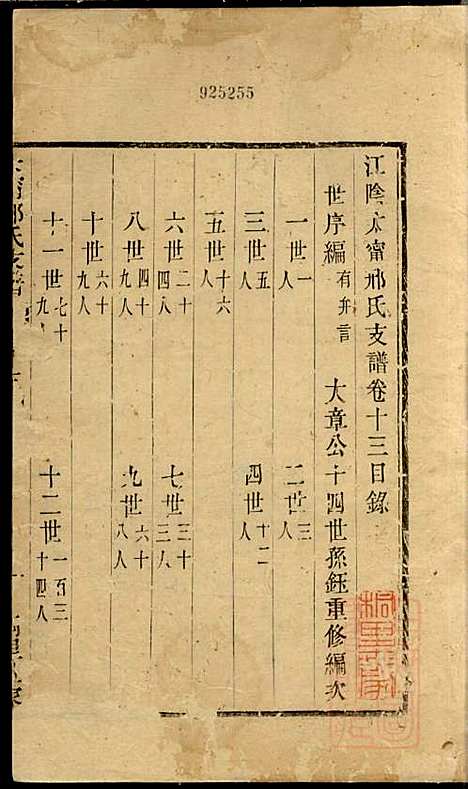 925255
江陰太甯邢氏支譜卷十三目錄
世序編 有弁言 大章公十四世孫鈺重修編次
一世 一人 二世 三人
三世 五人 四世 十二人
五世 十六人
六世 二十四人 七世 三十三人
八世 四十九人 九世 六十八人
十世 六十九人
十一世 七十九人 十二世 一百三十四人